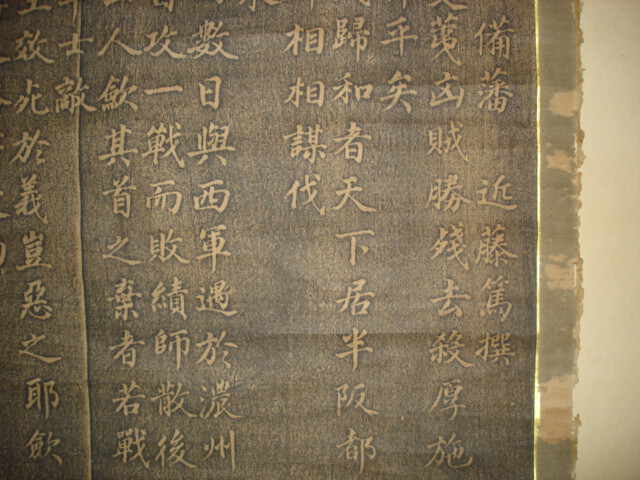 備藩 近藤篤撰
蔑凶賊勝殘去殺厚施
平矣
歸和者天下居半阪都
相相謀伐
數日與西軍遇於濃州
攻一戰而敗績師散後
人歛其首之棄者若戰
士敵
效死於義豈惡之耶歛